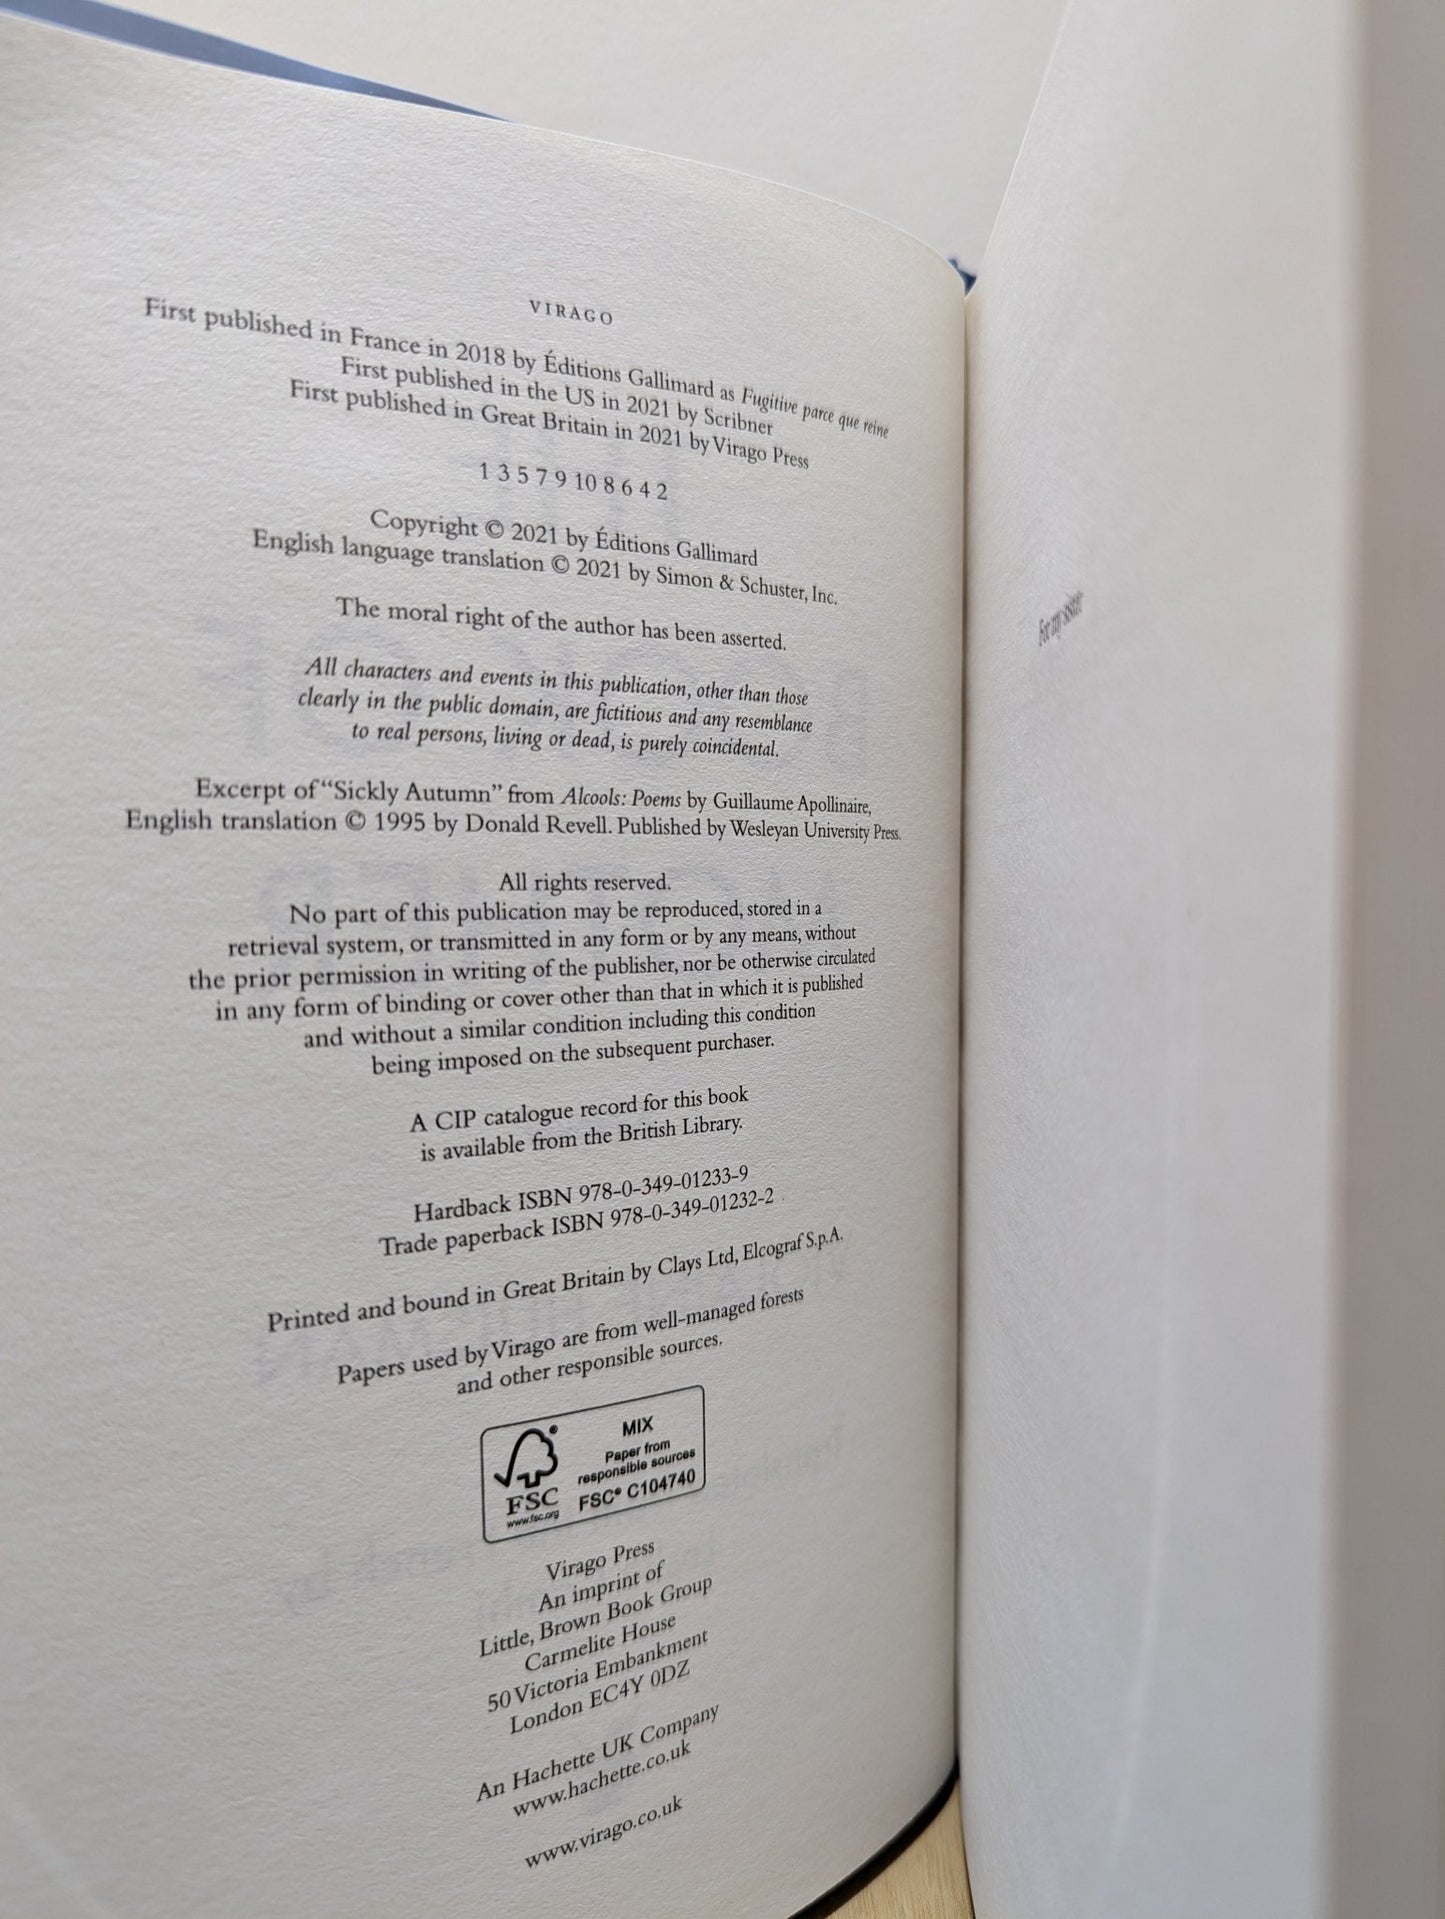 VIRAGO
First published in France in 2018 by Éditions Gallimard as Fugitive parce que reine
First published in the US in 2021 by Scribner
First published in Great Britain in 2021 by Virago Press
1 3 5 7 9 10 8 6 4 2
Copyright © 2021 by Éditions Gallimard
English language translation © 2021 by Simon & Schuster, Inc.
The moral right of the author has been asserted.
All characters and events in this publication, other than those
clearly in the public domain, are fictitious and any resemblance
to real persons, living or dead, is purely coincidental.
Excerpt of “Sickly Autumn” from Alcools: Poems by Guillaume Apollinaire,
English translation © 1995 by Donald Revell. Published by Wesleyan University Press.
All rights reserved.
No part of this publication may be reproduced, stored in a
retrieval system, or transmitted in any form or by any means, without
the prior permission in writing of the publisher, nor be otherwise circulated
in any form of binding or cover other than that in which it is published
and without a similar condition including this condition
being imposed on the subsequent purchaser.
A CIP catalogue record for this book
is available from the British Library.
Hardback ISBN 978-0-349-01233-9
Trade paperback ISBN 978-0-349-01232-2
Printed and bound in Great Britain by Clays Ltd, Elcograf S.p.A.
Papers used by Virago are from well-managed forests
and other responsible sources.
FSC
www.fsc.org
MIX
Paper from
responsible sources
FSC® C104740
Virago Press
An imprint of
Little, Brown Book Group
Carmelite House
50 Victoria Embankment
London EC4Y 0DZ
An Hachette UK Company
www.hachette.co.uk
www.virago.co.uk
For my sister